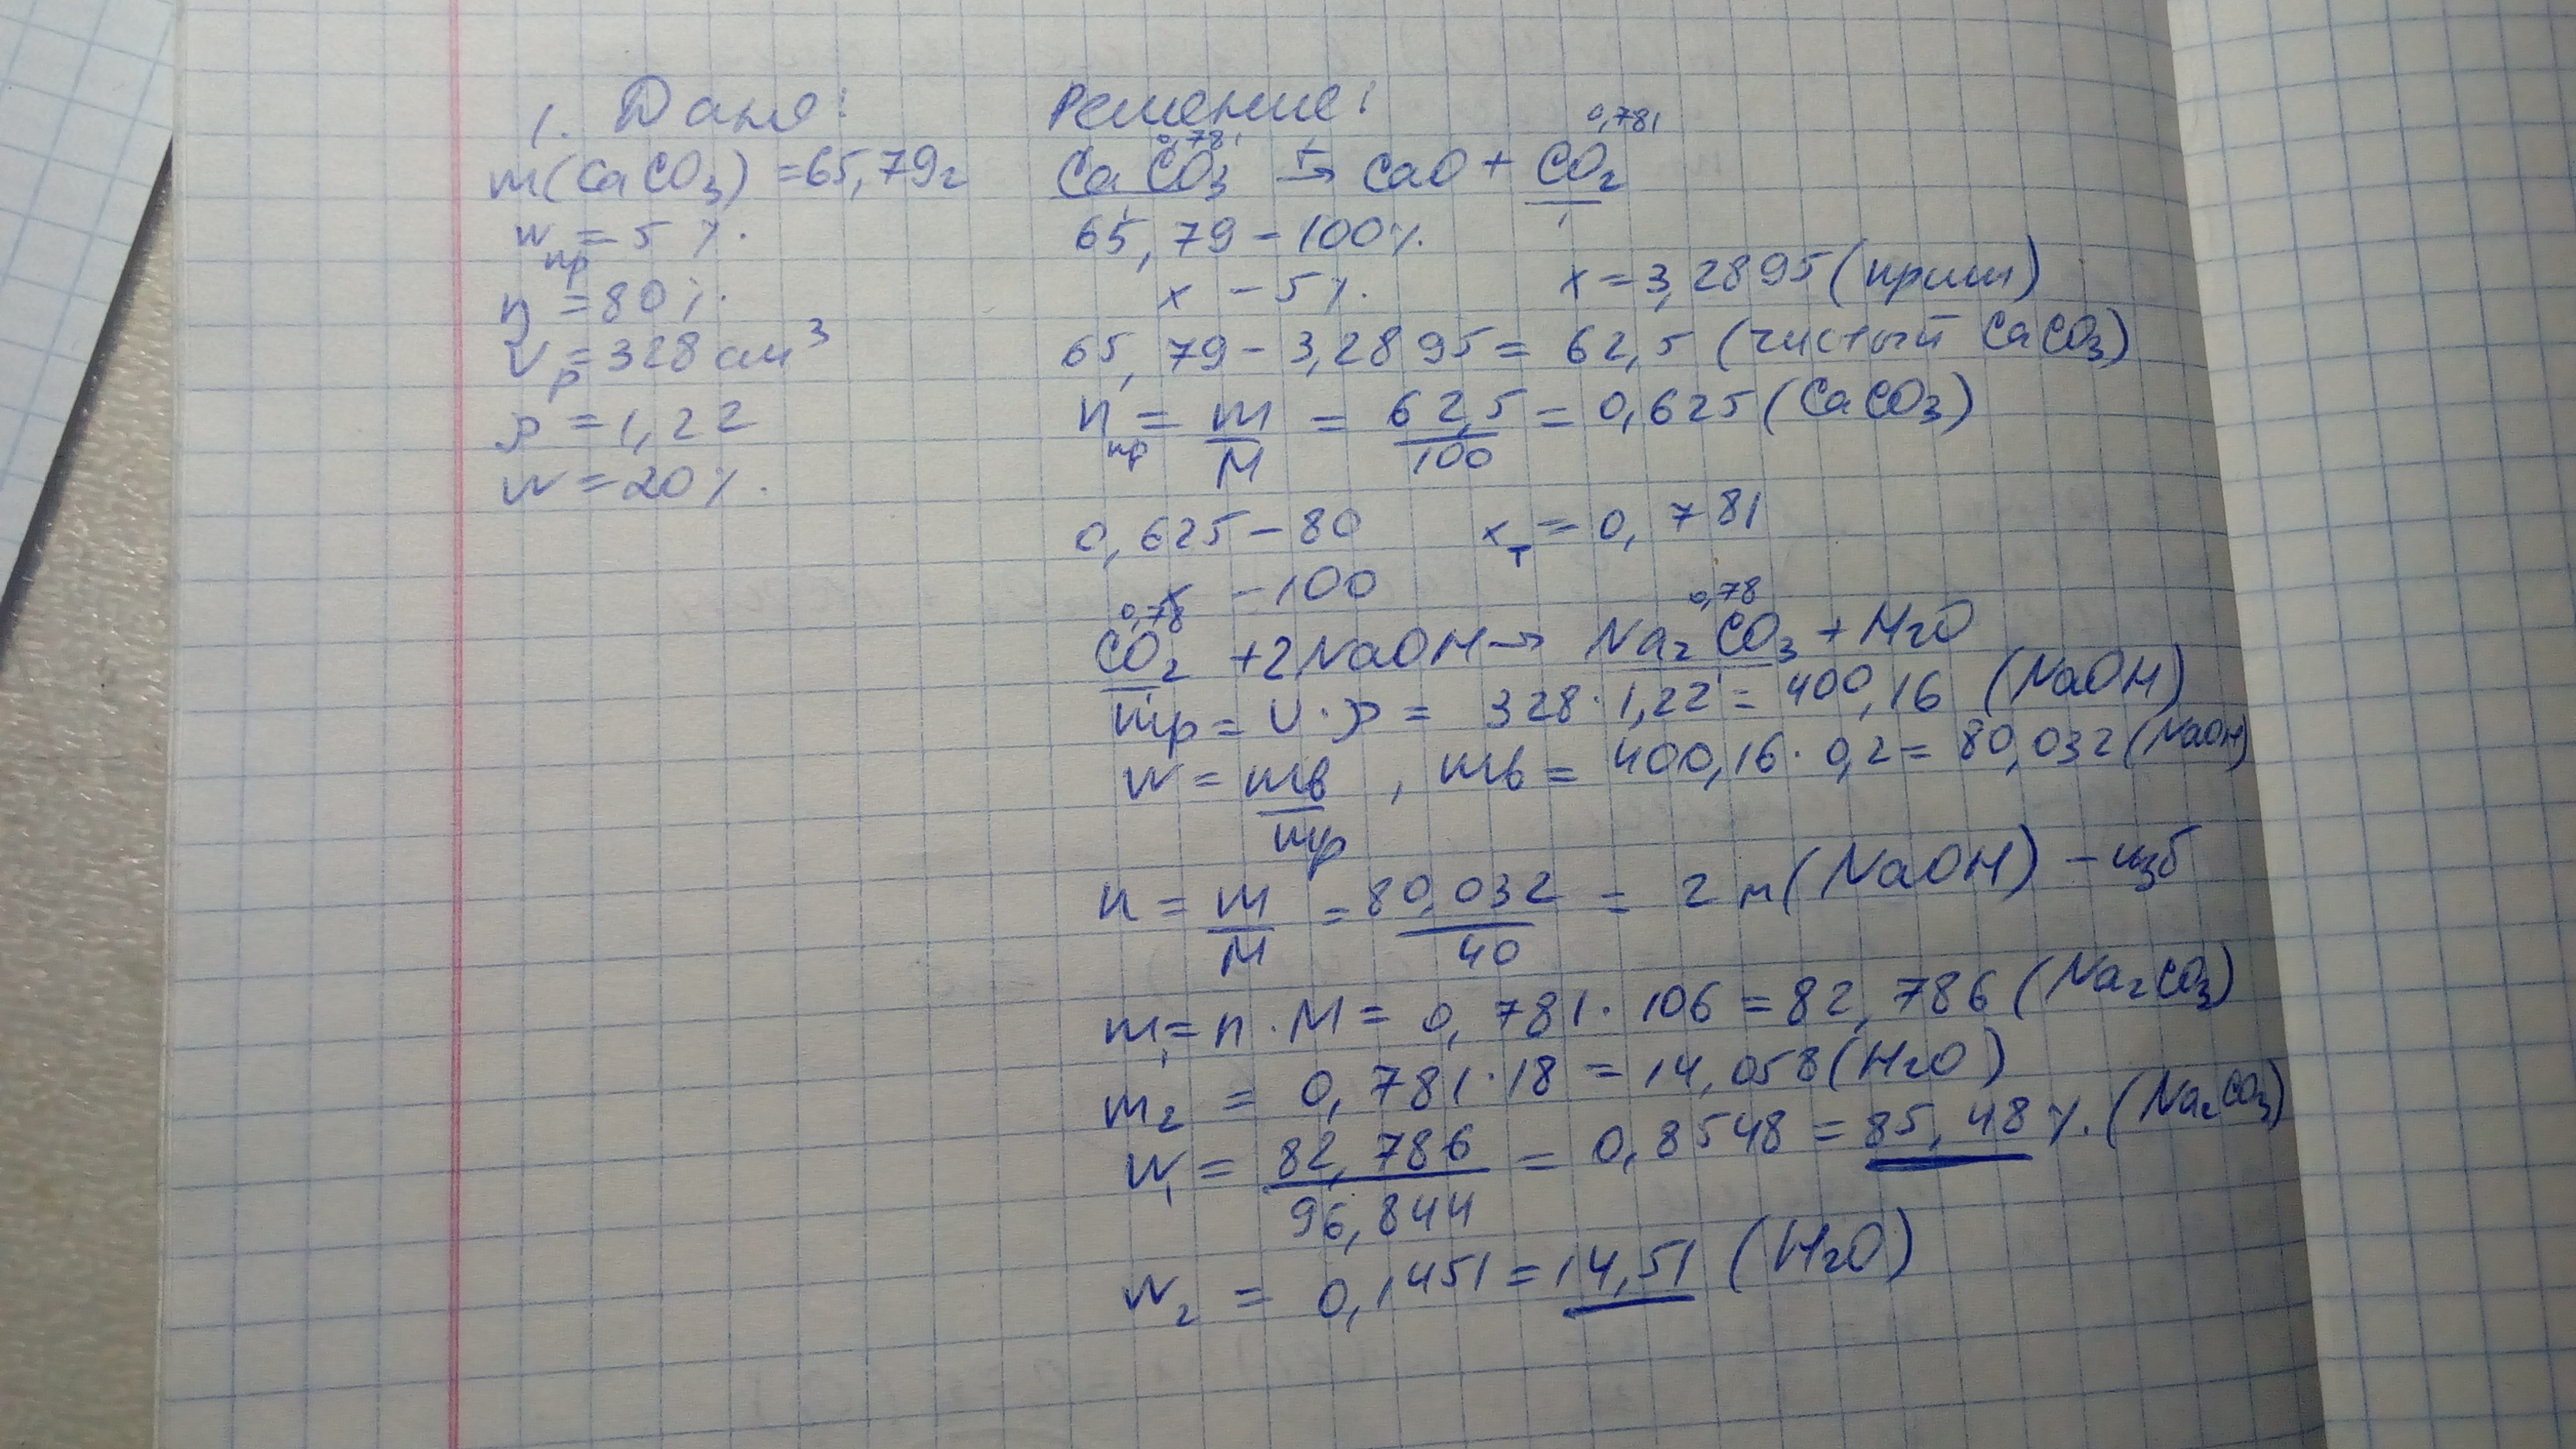 1. Дано:
m(CaCO3) = 65,79г
wпр = 5%.
η = 80%.
Vр = 328 см³
ρ = 1,22
w = 20%.
Решение:
0,781 0,781
CaCO3 t→ CaO + CO2
1 1
65,79 – 100%.
x – 5%. x = 3,2895 (прим)
65,79 – 3,2895 = 62,5 (чистый CaCO3)
nпр = m/M = 62,5/100 = 0,625 (CaCO3)
0,625 – 80 xт = 0,781
x – 100
0,78 0,78
CO2 + 2NaOH → Na2CO3 + H2O
1 1
mр = V · ρ = 328 · 1,22 = 400,16 (NaOH)
w = mв/mр , mв = 400,16 · 0,2 = 80,032 (NaOH)
n = m/M = 80,032/40 = 2 м (NaOH) – изб
m1 = n · M = 0,781 · 106 = 82,786 (Na2CO3)
m2 = 0,781 · 18 = 14,058 (H2O)
w1 = 82,786/96,844 = 0,8548 = 85,48%. (Na2CO3)
w2 = 0,1451 = 14,51 (H2O)